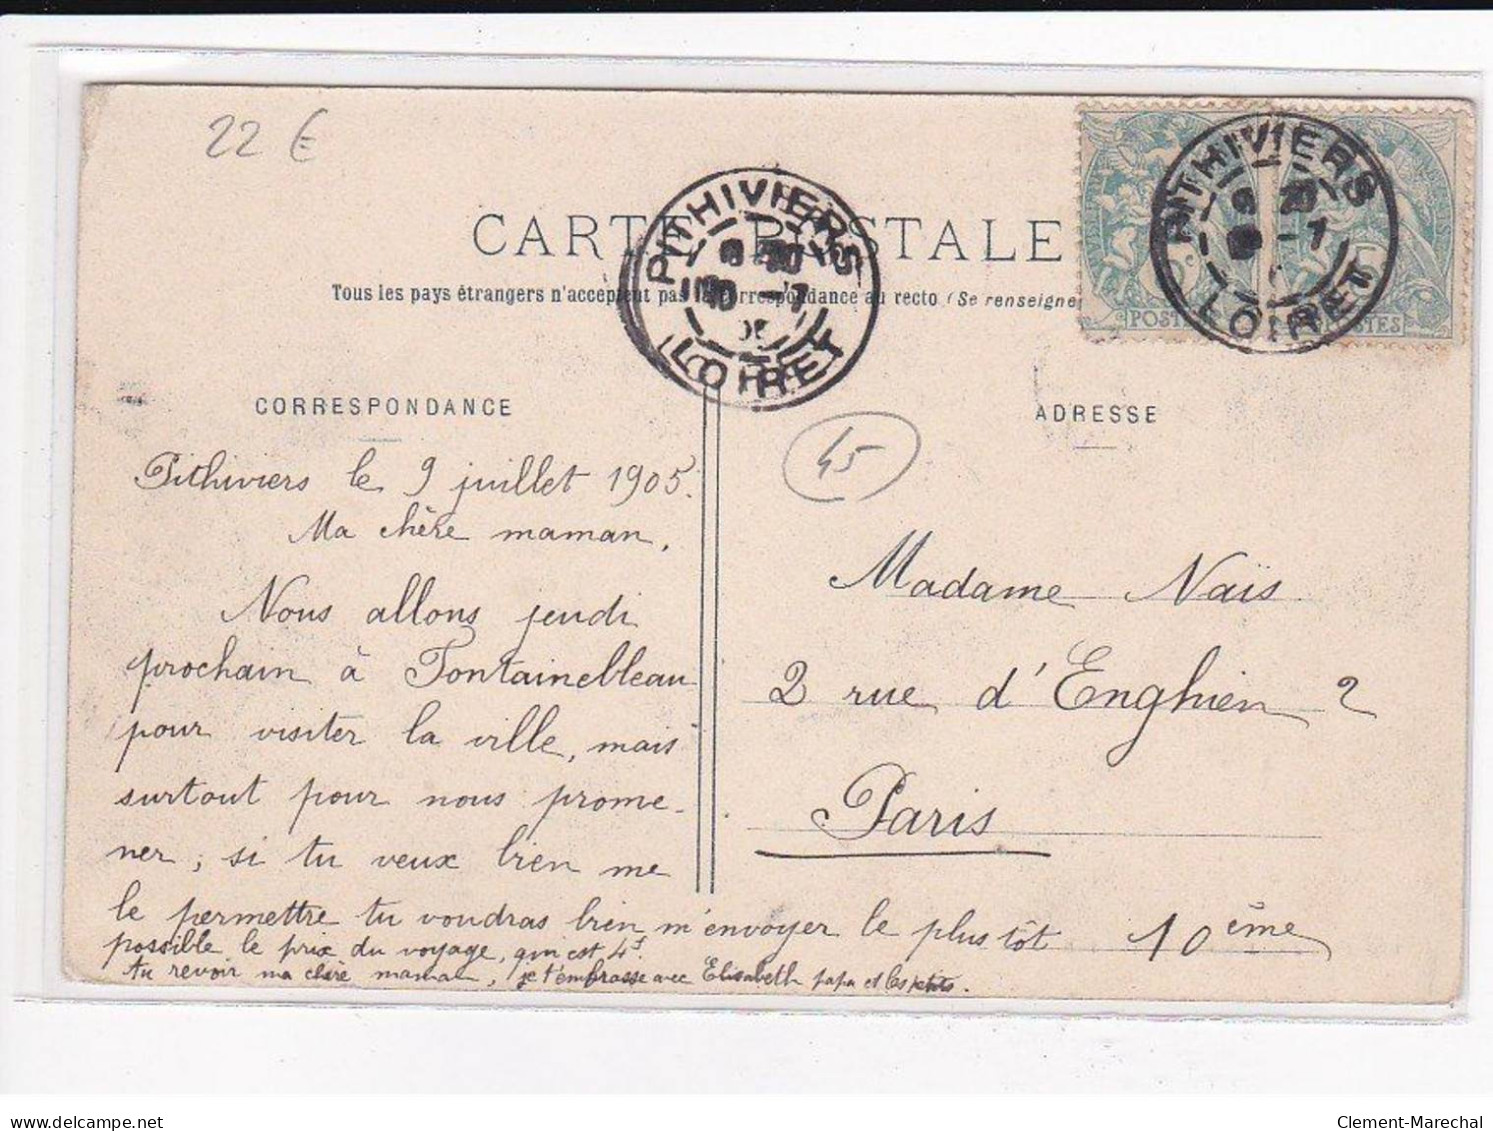 22 €
CARTE POSTALE
Tous les pays étrangers n'acceptent pas la correspondance au recto (Se renseigne
PITHIVIERS
LOIRET
PITHIVIERS
LOIRET
POSTES
CORRESPONDANCE
ADRESSE
45
Pithiviers le 9 juillet 1905.
Ma chère maman,
Nous allons jeudi
prochain à Fontainebleau
pour visiter la ville, mais
surtout pour nous prome-
ner, si tu veux bien me
le permettre tu voudras bien m'envoyer le plus tôt
possible le prix du voyage, qui est 4f.
Au revoir ma chère maman, je t'embrasse avec Elisabeth papa et les petits.
Madame Naïs
2 rue d'Enghien 2
Paris
10ème
www.delcampe.net
Clement-Marechal